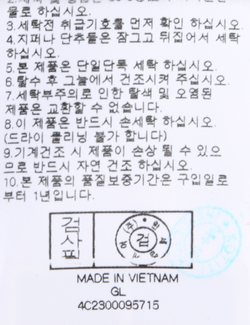 물로 하십시오.
3.세탁전 취급기호를 먼저 확인 하십시오.
4.지퍼나 단추들은 잠그고 뒤집어서 세탁
하십시오.
5.본 제품은 단일단독 세탁 하십시오.
6.탈수 후 그늘에서 건조시켜 주십시오.
7.세탁부주의로 인한 탈색 및 오염된
제품은 교환할 수 없습니다.
8.이 제품은 반드시 손세탁 하십시오.
(드라이 클리닝 불가 합니다)
9.기계건조 시 제품이 손상 될 수 있으
므로 반드시 자연 건조 하십시오
10.본 제품의 품질보증기간은 구입일로
부터 1년입니다.
검사필
검
MADE IN VIETNAM
GL
4C2300095715